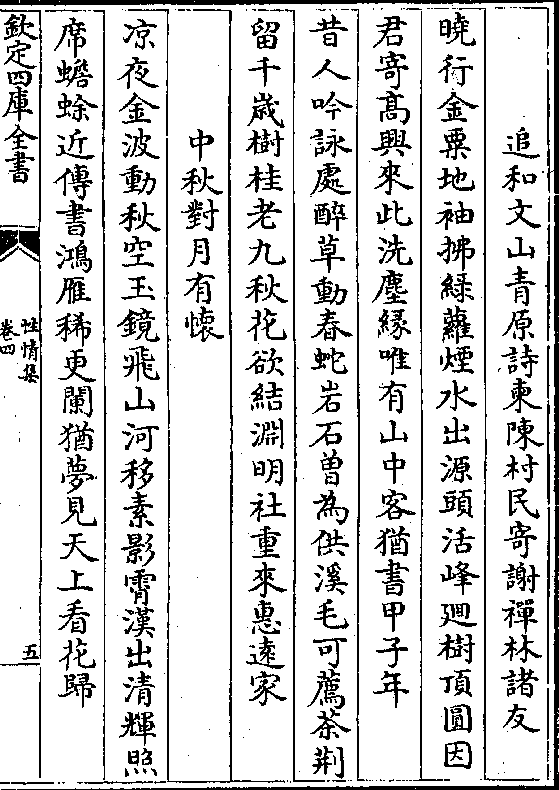 追和文山青原詩東陳村民寄謝禪林諸友
曉行金粟地袖拂綠蘿煙水出源頭活峰廻樹頂圓因
君寄髙興來此洗塵緣唯有山中客猶書甲子年
昔人吟詠處醉草動春蛇岩石曽為供溪毛可薦茶荆
留千歳樹桂老九秋花欲結淵明社重來惠逺家
中秋對月有懷
凉夜金波動秋空玉鏡飛山河移素影霄漢出清輝照
席蟾蜍近傳書鴻雁稀更闌猶夢見天上看花歸
欽定四庫全書
性情集
卷四
五